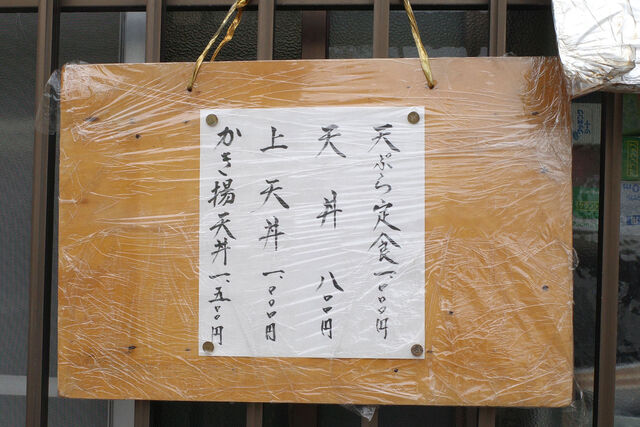 天ぷら定食一、〇〇〇円
天丼 八〇〇円
上天丼 一、〇〇〇円
かき揚天丼一、五〇〇円